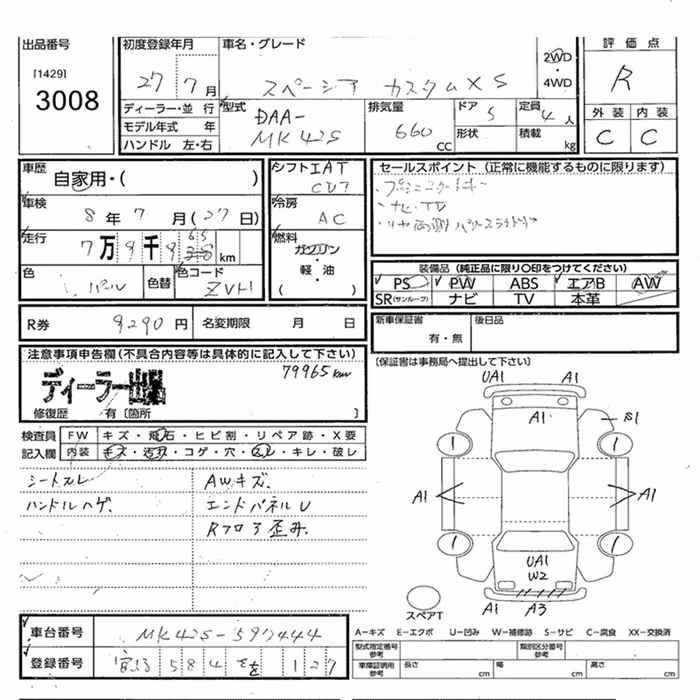 出品番号
[1429]
3008
初度登録年月
27 7月
車名・グレード
スペーシア カスタムXS
2WD
・
4WD
評価点
R
外装 内装
C C
ディーラー・並行
モデル年式 年
ハンドル 左・右
型式
DAA-
MK42S
排気量
660
CC
ドア 5
形状
定員 4人
積載 kg
車歴
自家用・( )
車検
8年 7月(27日)
走行
7万9千965km
色
パール
色替
色コード
ZVH
シフト IAT
CVT
冷房
AC
燃料
ガソリン
・
軽・油
( )
セールスポイント(正常に機能するものに限ります)
・プッシュスタート
・ナビ・TV
・リヤ両側パワースライドドア
装備品(純正品に限り〇印をつけてください)
PS PW ABS エアB AW
SR(サンルーフ) ナビ TV 本革
R券 9290円 名変期限 月 日
新車保証書
有・無
後日品
(保証書は事務局へ提出して下さい)
注意事項申告欄(不具合内容等は具体的に記入して下さい)
79965km
修復歴 有 [箇所 ]
検査員
記入欄
FW キズ・飛石・ヒビ割・リペア跡・X要
内装 キズ・汚れ・コゲ・穴・スレ・キレ・破レ
シートスレ
ハンドルハゲ.
AWキズ.
エンドパネルU
Rフロア歪み.
UA1 A1
A1
S1
1 1
A1 A1
1 1
UA1
W2
A1 A3
スペアT
車台番号 MK42S-597444
登録番号 584 を 127
A-キズ E-エクボ U-凹み W-補修跡 S-サビ C-腐食 XX-交換済
型式指定番号
参考
類別区分番号
参考
車庫証明用
参考
長さ cm 幅 cm 高さ cm